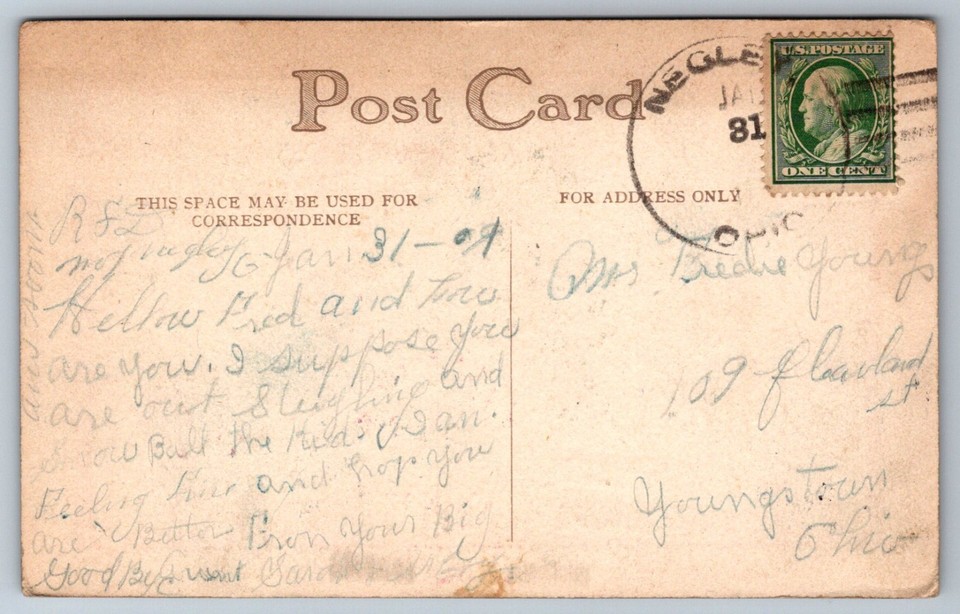 Post Card
THIS SPACE MAY BE USED FOR
CORRESPONDENCE
FOR ADDRESS ONLY
U.S. POSTAGE
ONE CENT
NEGLE
JAN
31
OHIO
R F D
Jan 31-09
Hellow Fred and how
are you. I suppose you
are out Sleighing and
Snow Ball the Kids. I Jan.
Feeling Fine and hop you
are Better From Your Big
Good Bye
Mrs Fredie Youngs
109 Cleavland
st
Youngstown
Ohio
ans soon